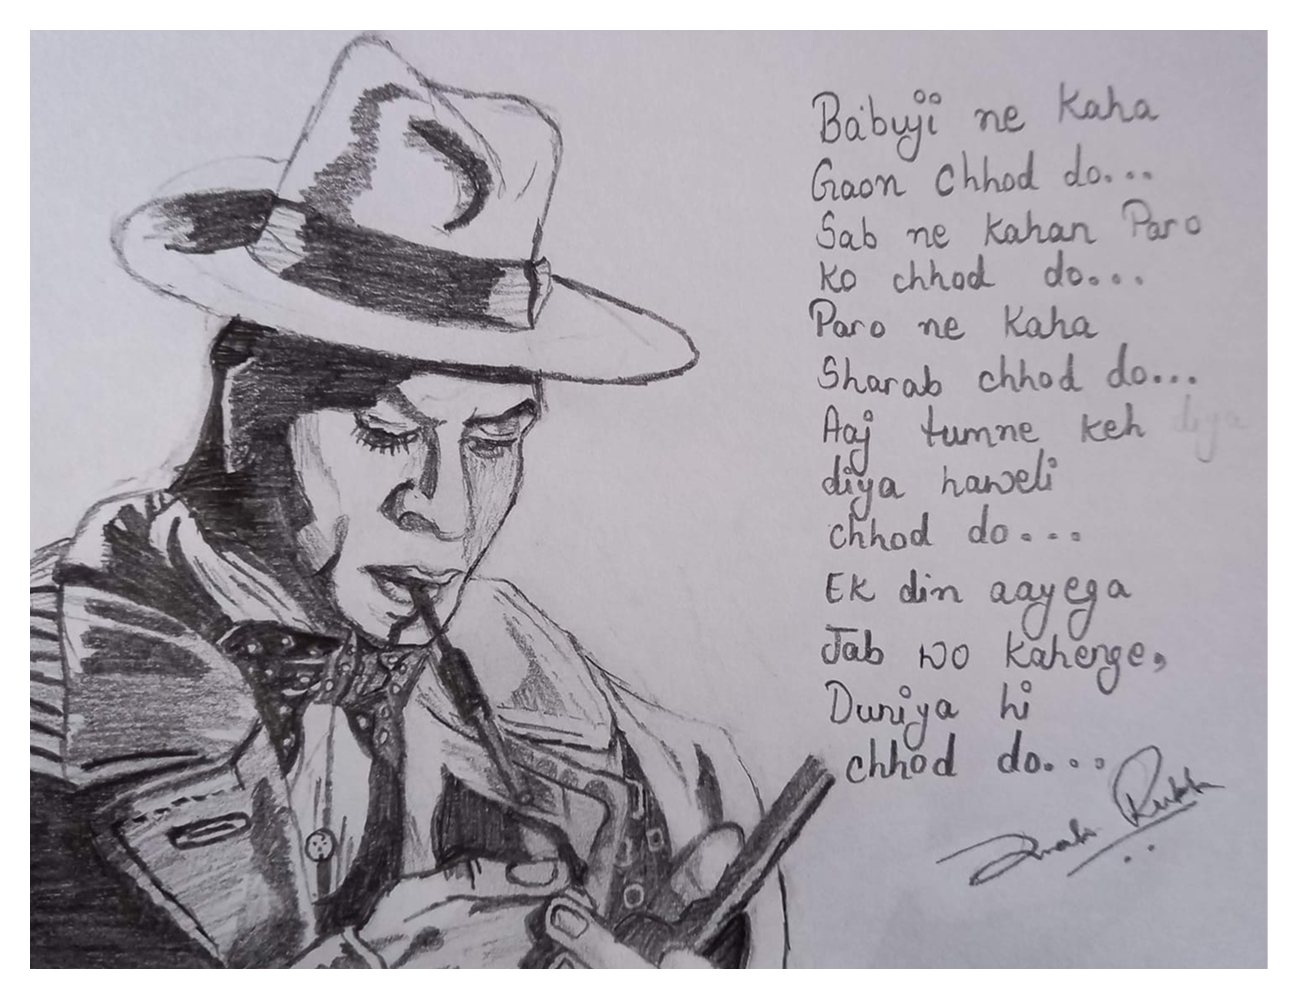 Babuji ne kaha
Gaon chhod do...
Sab ne kahan Paro
ko chhod do...
Paro ne kaha
Sharab chhod do...
Aaj tumne keh diya
diya haweli
chhod do...
Ek din aayega
Jab wo kahenge,
Duniya hi
chhod do...